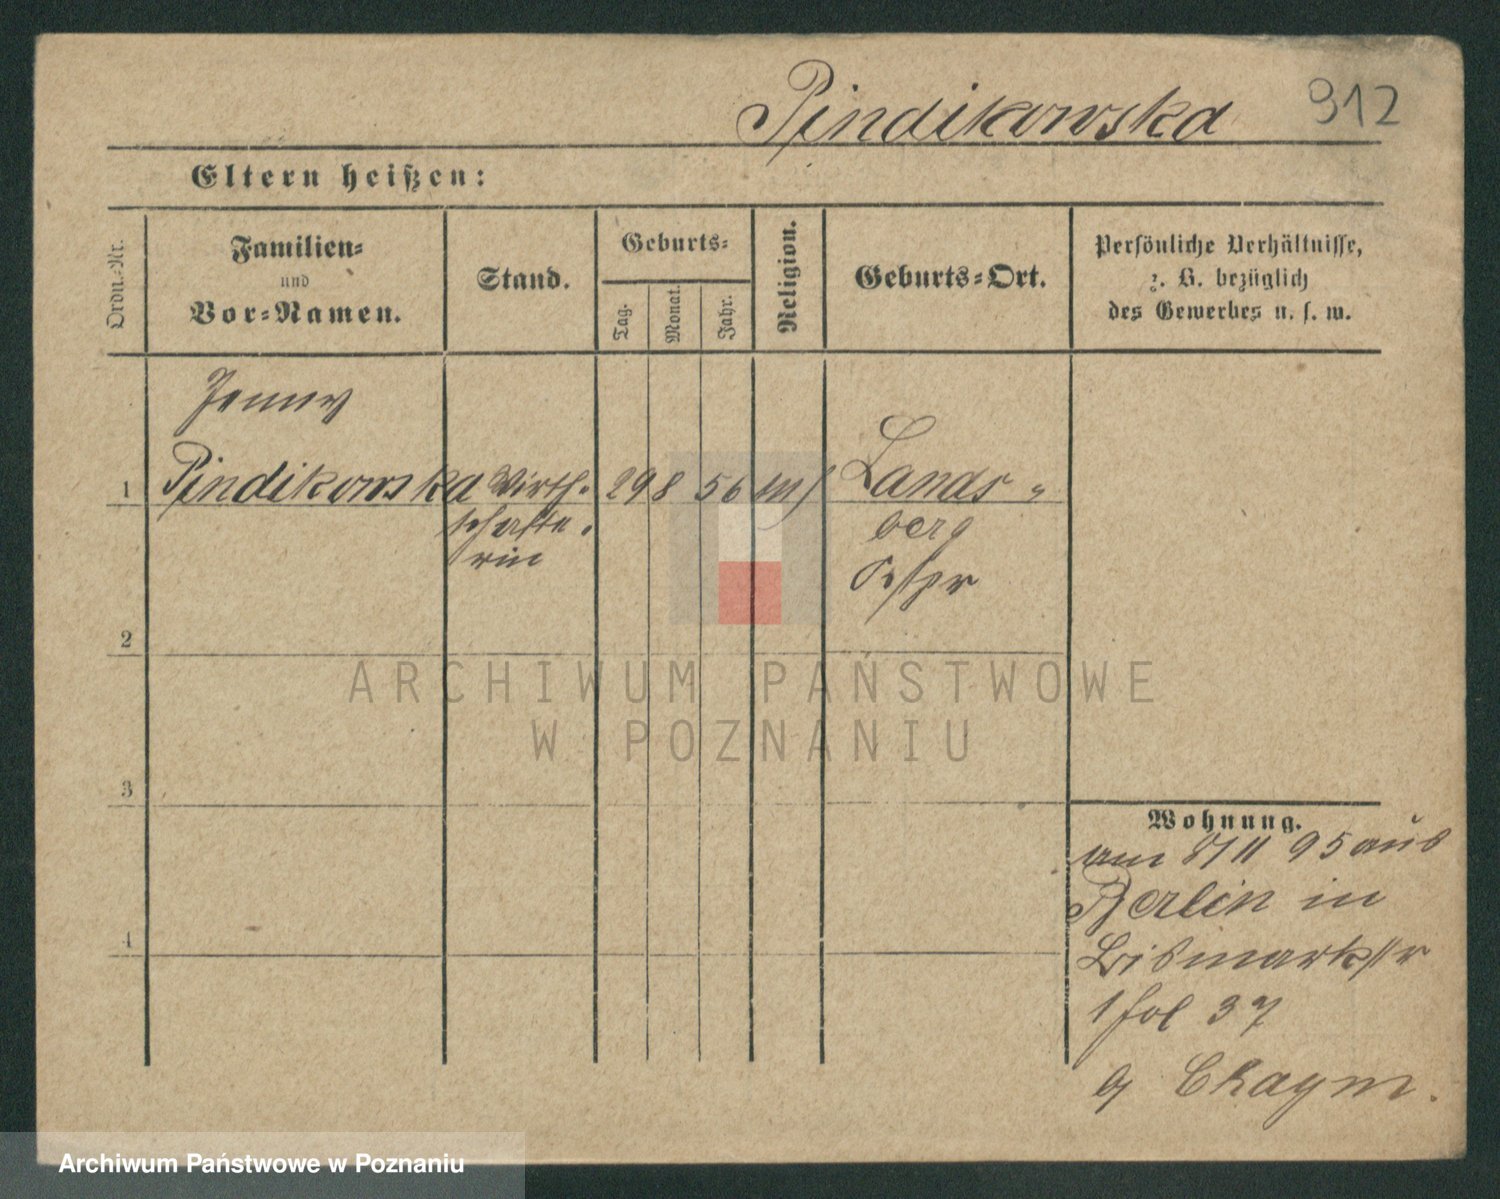 Pindikowska 912
Eltern heißen:
Ordn.-Nr.
Familien-
und
Vor-Namen.
Stand.
Geburts-
Tag.
Monat.
Jahr.
Religion.
Geburts-Ort.
Persönliche Verhältnisse,
z. B. bezüglich
des Gewerbes u. s. w.
Jenny
1 Pindikowska Wirth- 29 8 56 Lands-
schafte-
rin
berg
2
3
4
Wohnung.
am 8/11 95 aus
Berlin in
Bismarkstr
1 fol 37
ARCHIWUM PAŃSTWOWE
W POZNANIU
Archiwum Państwowe w Poznaniu